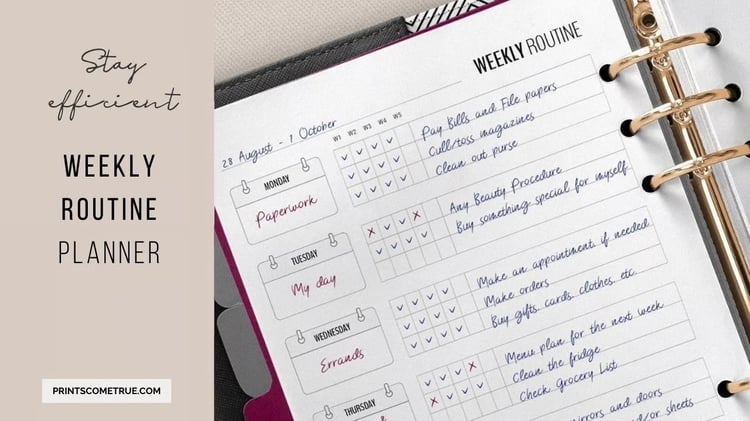 Stay
efficient
WEEKLY
ROUTINE
PLANNER
PRINTSCOMETRUE.COM
WEEKLY ROUTINE
28 August - 1 October
W1 W2 W3 W4 W5
MONDAY
Paperwork
Pay Bills and File papers
Cull/toss magazines
Clean out purse
TUESDAY
My day
Any Beauty Procedure
Buy something special for myself
WEDNESDAY
Errands
Make an appointment, if needed
Make orders
Buy gifts, cards, clothes, etc.
THURSDAY
Menu plan for the next week
Clean the fridge
Check Grocery List
mirrors and doors
and/or sheets